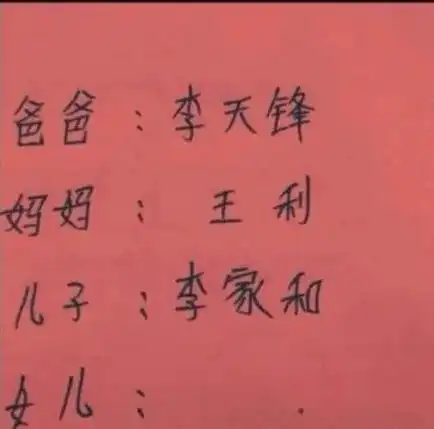 爸爸：李天锋
妈妈：王利
儿子：李家和
女儿：